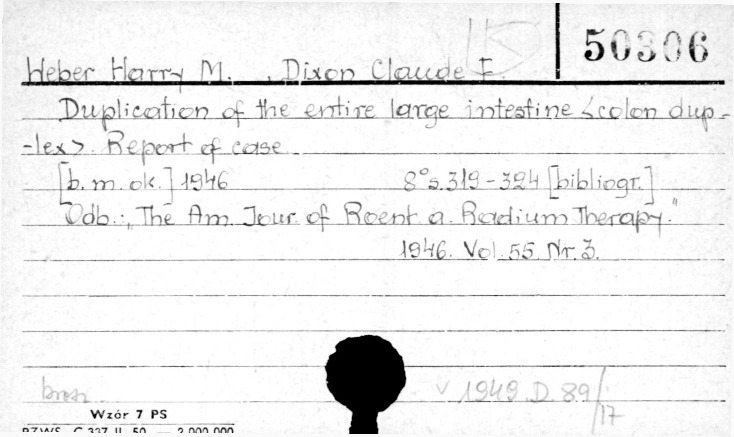 50306
Weber Harry M., Dixon Claude F.
Duplication of the entire large intestine <colon dup-
-lex>. Report of case
[b. m. ok.] 1946 8° s. 319-324 [bibliogr.]
Odb.: „The Am. Jour. of Roent. a. Radium Therapy."
1946. Vol. 55 Nr. 3.
brosz. v 1949 D 89/17
Wzór 7 PS
PZWS. C-337 II 50. — 2.000.000